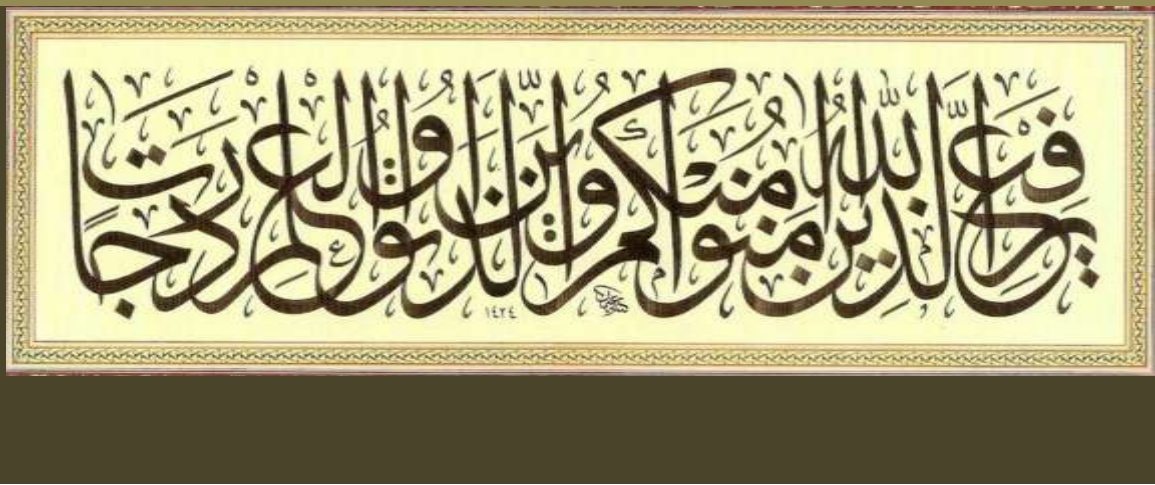 يَرْفَعِ اللَّهُ الَّذِينَ آمَنُوا مِنكُمْ وَالَّذِينَ أُوتُوا الْعِلْمَ دَرَجَاتٍ
١٤٢٤